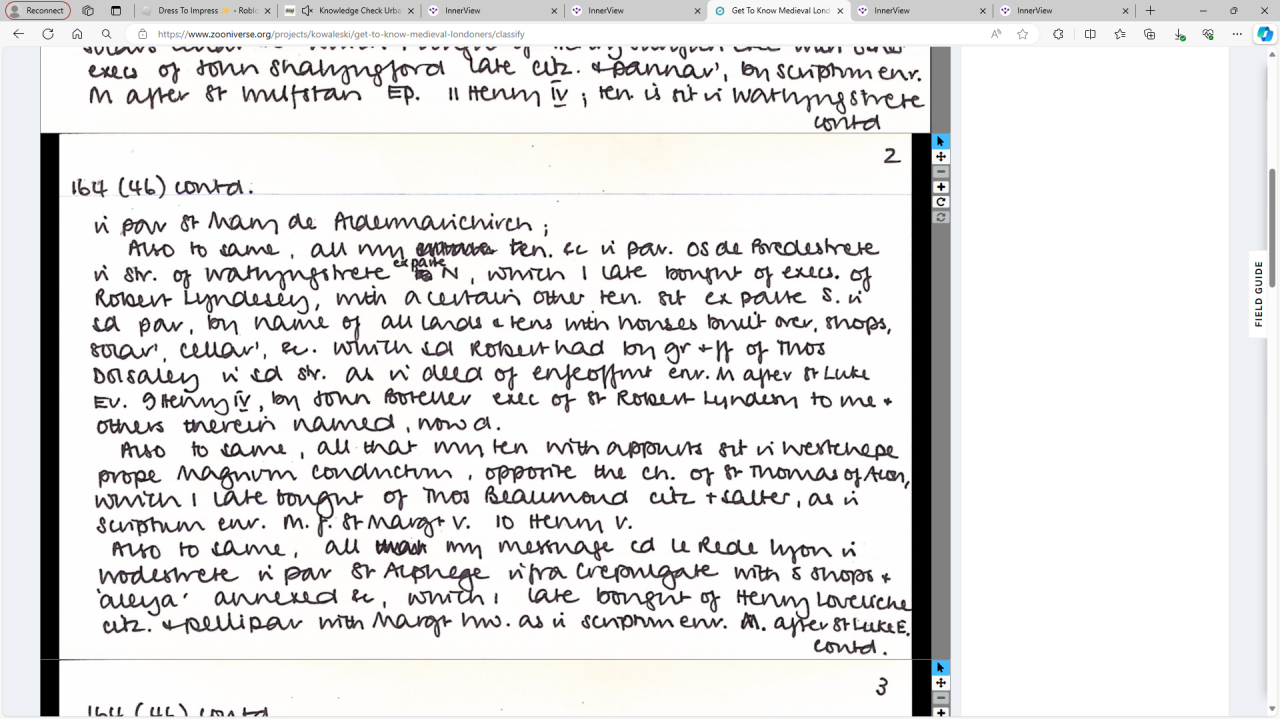 Reconnect
Dress To Impress ✨ - Roblo
Knowledge Check Urba
InnerView
InnerView
Get To Know Medieval Lond
InnerView
InnerView
https://www.zooniverse.org/projects/kowaleski/get-to-know-medieval-londoners/classify
execs of John Shallyngford late citz. + pannar', by scriptum enr.
M after St Wulfstan Ep. 11 Henry IV ; ten. is sit in Wathyngstrete
contd
2
164 (46) contd.
in par St Mary de Aldermarichirch ;
Also to same, all my ten. &c in par. OS de Bredestrete
in str. of Wathyngstrete ex parte N, which I late bought of execs. of
Robert Lyndesey, with a certain other ten. sit ex parte S. in
sd par, by name of all lands & tens with houses built over, shops,
solar', cellar', &c. which sd Robert had by gr + ff of Thos
Dolsaley in sd str. as in deed of enfeoffmt enr. M after St Luke
Ev. 9 Henry IV, by John Boteller exec of Robert Lyndesey to me +
others therein named, now d.
Also to same, all that my ten with appurts sit in Westchepe
prope Magnum Conductum, opposite the ch. of St Thomas of Acon,
which I late bought of Thos Beaumond citz + salter, as in
scriptum enr. M. f. St Margt V. 10 Henry V.
Also to same, all my message cd le Rede Lyon in
Wodestrete in par St Alphege infra Crepulgate with 5 shops +
'aleya' annexed &c, which I late bought of Henry Loveliche
citz. + pellipar with Margt hw. as in scriptum enr. M. after St Luke E.
contd.
3
164 (46) contd
FIELD GUIDE